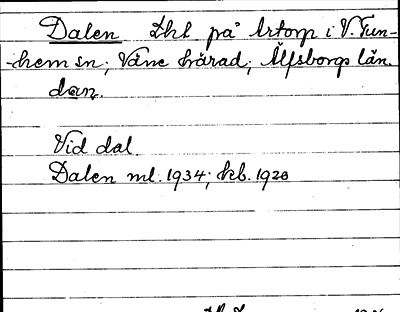 Dalen Lht på Artorp i V. Tun-
-hem sn, Väne härad, Älfsborgs län.
dan.
Vid dal.
Dalen ml. 1934; kb. 1920